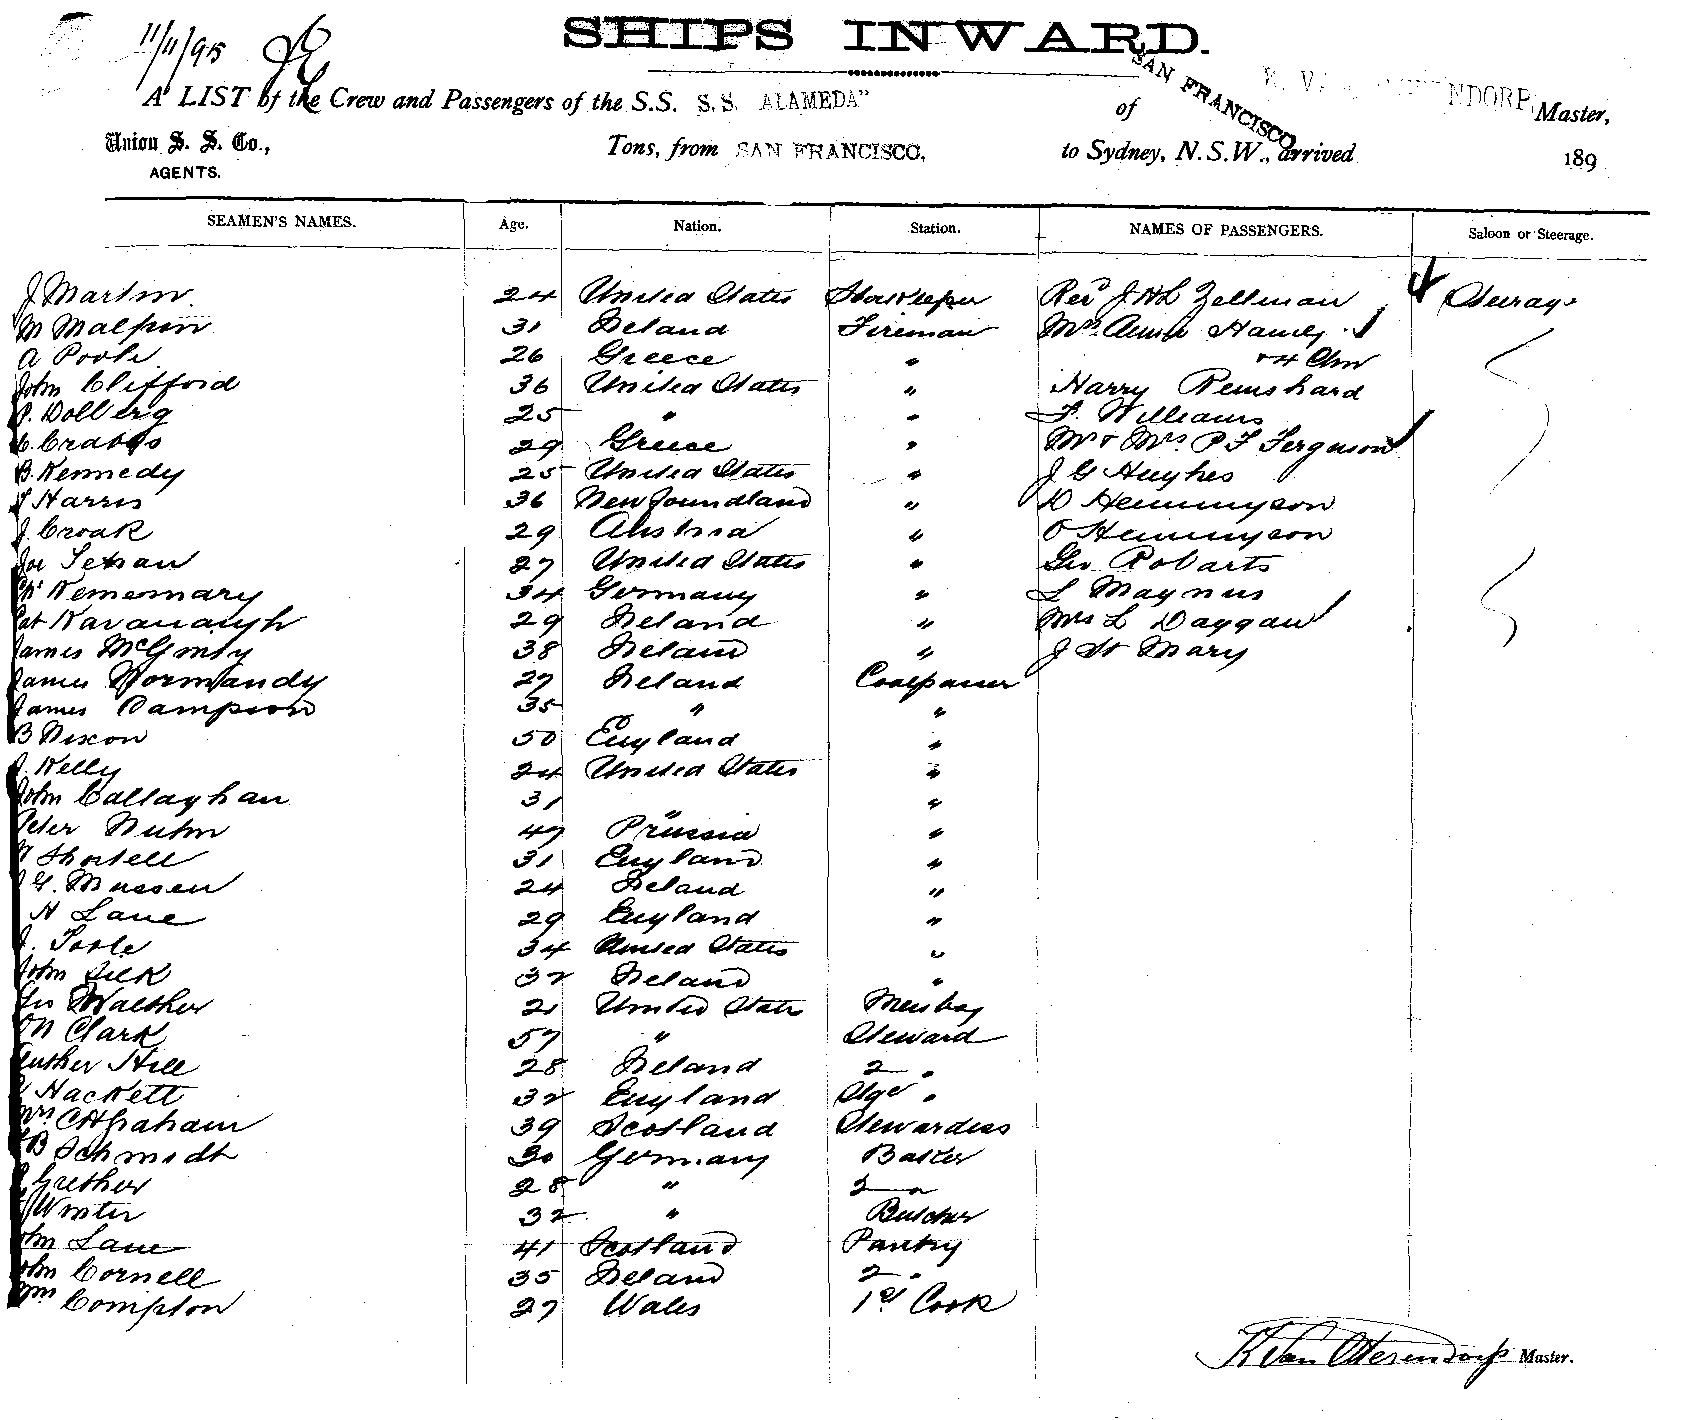 11/11/95
SHIPS INWARD.
A LIST of the Crew and Passengers of the S.S. S.S. ALAMEDA" of SAN FRANCISCO Master,
Union S. S. Co., Tons, from SAN FRANCISCO, to Sydney, N.S.W., arrived 189
AGENTS.
SEAMEN'S NAMES. Age. Nation. Station. NAMES OF PASSENGERS. Saloon or Steerage.
J Martin 24 United States Storekeeper Revd J H L Zellman Steerage
M Malpin 31 Ireland Fireman Mrs Annie Hamly
A Poole 26 Greece " + 4 Chn
John Clifford 36 United States " Harry Remshard
P. Dolberg 25 " " F. Williams
C. Crabbs 29 Greece " Mr & Mrs P F Ferguson
B. Kennedy 25 United States " J G Hughes
J Harris 36 Newfoundland " D Hemmyson
J. Croak 29 Austria " O Hemmyson
Joe Tehan 27 United States " Geo Robarts
Kememary 34 Germany " L Maynus
Pat Kavanaugh 29 Ireland " Mrs L Daggan
James McGinty 38 Ireland " J St Mary
James Normandy 27 Ireland Coalpasser
James Campion 35 " "
B Nixon 50 England "
J. Kelly 24 United States "
John Callaghan 31 " "
Peter Nuhn 47 Prussia "
Shortell 31 England "
J G. Mussen 24 Ireland "
H Lane 29 England "
J. Toole 34 United States "
John Silk 32 Ireland "
Geo Walther 21 United States Messboy
M Clark 57 " Steward
Luther Hill 28 Ireland 2 "
Hackett 32 England Stge "
Mrs C H Graham 39 Scotland Stewardess
B Schmidt 30 Germany Baker
Grether 28 " 2 "
Winter 32 " Butcher
John Lane 41 Scotland Pantry
John Cornell 35 Ireland 2 "
Wm Compton 27 Wales 1st Cook
K Van Oterendorp Master.